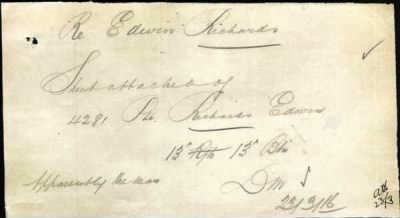 Re Edwin Richards
Sheet attached of
4281 Pte. Richards Edwin
13th 13th Bn
Apparently the man
DM
23/3/16
23/3